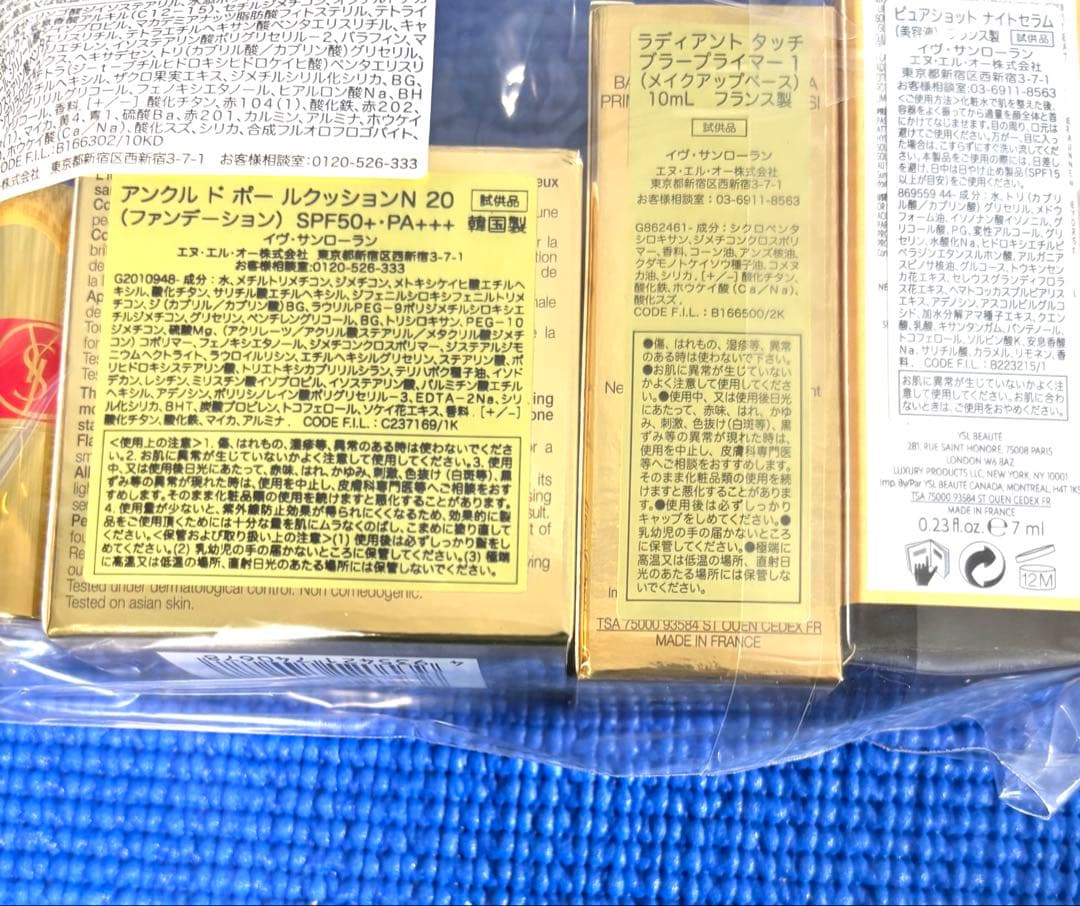 酸ジインステアリル、
アルキル(C12-15)、セチルジメチコン、
テトライソステアリン酸
キサン酸ペンタエリスリチル、キャ
酸ポリグリセリル-2、パラフィン、マ
トリ(カプリル酸/カプリン酸)グリセリル、
ザクロ果実エキス、ジメチルシリル化シリカ、BG、
グリコール、フェノキシエタノール、ヒアルロン酸Na、BH
香料、[+/-] 酸化チタン、赤104(1)、酸化鉄、赤202、
黄4、青1、硫酸Ba、赤201、カルミン、アルミナ、ホウケイ
(Ca/Na)、酸化スズ、シリカ、合成フルオロフロゴパイト、
CODE F.I.L.:B166302/10KD
株式会社 東京都新宿区西新宿3-7-1 お客様相談室:0120-526-333
アンクル ド ポー ルクッションN 20 試供品
(ファンデーション) SPF50+・PA+++ 韓国製
イヴ・サンローラン
エヌ・エル・オー株式会社 東京都新宿区西新宿3-7-1
お客様相談室:0120-526-333
G2010948- 成分:水、メチルトリメチコン、ジメチコン、メトキシケイヒ酸エチルヘ
キシル、酸化チタン、サリチル酸エチルヘキシル、ジフェニルシロキシフェニルトリメ
チコン、ジ(カプリル/カプリン酸)BG、ラウリルPEG-9ポリジメチルシロキシエ
チルジメチコン、グリセリン、ペンチレングリコール、BG、トリシロキサン、PEG-10
ジメチコン、硫酸Mg、(アクリレーツ/アクリル酸ステアリル/メタクリル酸ジメチ
コン)コポリマー、フェノキシエタノール、ジメチコンクロスポリマー、ジステアルジモ
ニウムヘクトライト、ラウロイルリシン、エチルヘキシルグリセリン、ステアリン酸、ポ
リヒドロキシステアリン酸、トリエトキシカプリリルシラン、テリハボク種子油、イソド
デカン、レシチン、ミリスチン酸イソプロピル、イソステアリン酸、パルミチン酸エチル
ヘキシル、アデノシン、ポリリシノレイン酸ポリグリセリル-3、EDTA-2Na、シリ
ル化シリカ、BHT、炭酸プロピレン、トコフェロール、ソケイ花エキス、香料、[+/-]
酸化チタン、酸化鉄、マイカ、アルミナ. CODE F.I.L.:C237169/1K
<使用上の注意>1. 傷、はれもの、湿疹等、異常のある時は使わないでくださ
い。2. お肌に異常が生じていないかよく注意して使用してください。3. 使用
中、又は使用後日光にあたって、赤味、はれ、かゆみ、刺激、色抜け(白斑等)、黒
ずみ等の異常が現れた時は、使用を中止し、皮膚科専門医等へご相談をおすす
めします。そのまま化粧品類の使用を続けますと悪化することがあります。
4. 使用量が少ないと、紫外線防止効果が得られにくくなるため、効果的に製
品をご使用頂くためには十分な量を肌にムラなくのばし、こまめに塗り直して
ください。<保管および取り扱い上の注意>(1) 使用後は必ずしっかり蓋をし
めてください。(2) 乳幼児の手の届かないところに保管してください。(3) 極端
に高温又は低温の場所、直射日光のあたる場所には保管しないでください。
Tested under dermatological control. Non comedogenic.
Tested on asian skin.
ラディアント タッチ
ブラープライマー 1
(メイクアップベース)
10mL フランス製
試供品
イヴ・サンローラン
エヌ・エル・オー株式会社
東京都新宿区西新宿3-7-1
お客様相談室:03-6911-8563
G862461- 成分:シクロペンタ
シロキサン、ジメチコンクロスポリ
マー、香料、コーン油、アンズ核油、
クダモノトケイソウ種子油、コメヌ
カ油、シリカ、[+/-] 酸化チタン、
酸化鉄、ホウケイ酸(Ca/Na)、
酸化スズ.
CODE F.I.L.:B166500/2K
●傷、はれもの、湿疹等、異常
のある時は使わないで下さい。
●お肌に異常が生じていない
かよく注意して使用してくださ
い。●使用中、又は使用後日光
にあたって、赤味、はれ、かゆ
み、刺激、色抜け(白斑等)、黒
ずみ等の異常が現れた時は、
使用を中止し、皮膚科専門医
等へご相談をおすすめします。
そのまま化粧品類の使用を続
けますと悪化することがありま
す。●使用後は必ずしっかり
キャップをしめてください。●
乳幼児の手の届かないところ
に保管してください。●極端に
高温又は低温の場所、直射日
光のあたる場所には保管しな
いでください。
TSA 75000 93584 ST OUEN CEDEX FR
MADE IN FRANCE
ピュアショット ナイトセラム
(美容液) フランス製 試供品
イヴ・サンローラン
エヌ・エル・オー株式会社
東京都新宿区西新宿3-7-1
お客様相談室:03-6911-8563
<ご使用方法>化粧水で肌を整えた後、
容器をよく振ってから適量を顔全体と首
にかけてなじませます。目の周り、口元は
避けてご使用ください。万が一、目に入っ
た場合は、こすらずにすぐ洗い流してくだ
さい。本製品をご使用の際には、日差し
を避け、日中は日やけ止め製品(SPF15
以上が目安)をご使用ください。
869559 44- 成分:水、トリ(カプリ
ル酸/カプリン酸)グリセリル、メドウ
フォーム油、イソノナン酸イソノニル、グ
リコール酸、PG、変性アルコール、グリ
セリン、水酸化Na、ヒドロキシエチルピ
ペラジンエタンスルホン酸、アルガニア
スピノサ核油、グルコース、トウキンセン
カ花エキス、セレウスグランディフロラ
ス花エキス、ヘマトコッカスプルビアリス
エキス、アデノシン、アスコルビルグルコ
シド、加水分解アマ種子エキス、クエン
酸、乳酸、キサンタンガム、パンテノール、
トコフェロール、ソルビン酸K、安息香酸
Na、サリチル酸、カラメル、リモネン、香
料. CODE F.I.L.:B223215/1
お肌に異常が生じていないかよく注
意して使用してください。お肌に合わ
ないときは、ご使用をおやめください。
YSL BEAUTÉ
281, RUE SAINT HONORÉ, 75008 PARIS
LONDON W6 8AZ
LUXURY PRODUCTS LLC, NEW YORK, NY 10001
Imp. By/Par YSL BEAUTÉ CANADA, MONTRÉAL, H4T 1K5
TSA 75000 93584 ST OUEN CEDEX FR
MADE IN FRANCE
0.23 fl.oz. ℮ 7 ml
12M